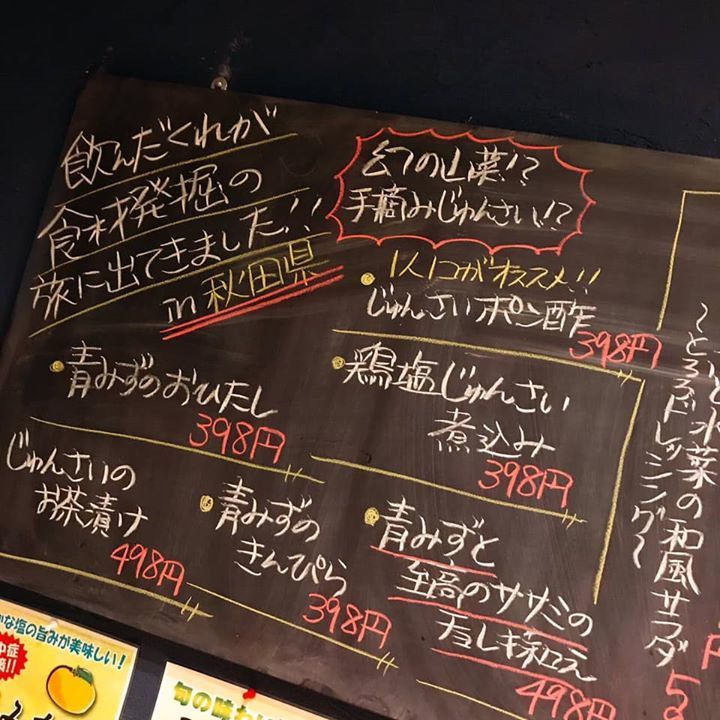 飲んだくれが
食材発掘の
旅に出てきました!!
in 秋田県
幻の山菜!?
手摘みじゅんさい!?
1人1コがオススメ!!
じゅんさいポン酢
398円
青みずのおひたし
398円
鶏塩じゅんさい
煮込み
398円
じゅんさいの
お茶漬け
498円
青みずの
きんぴら
398円
青みずと
至高のササミの
和え
498円
水菜の和風サラダ
〜とろろドレッシング〜
塩の旨みが美味しい!
中症
!!
旬の味